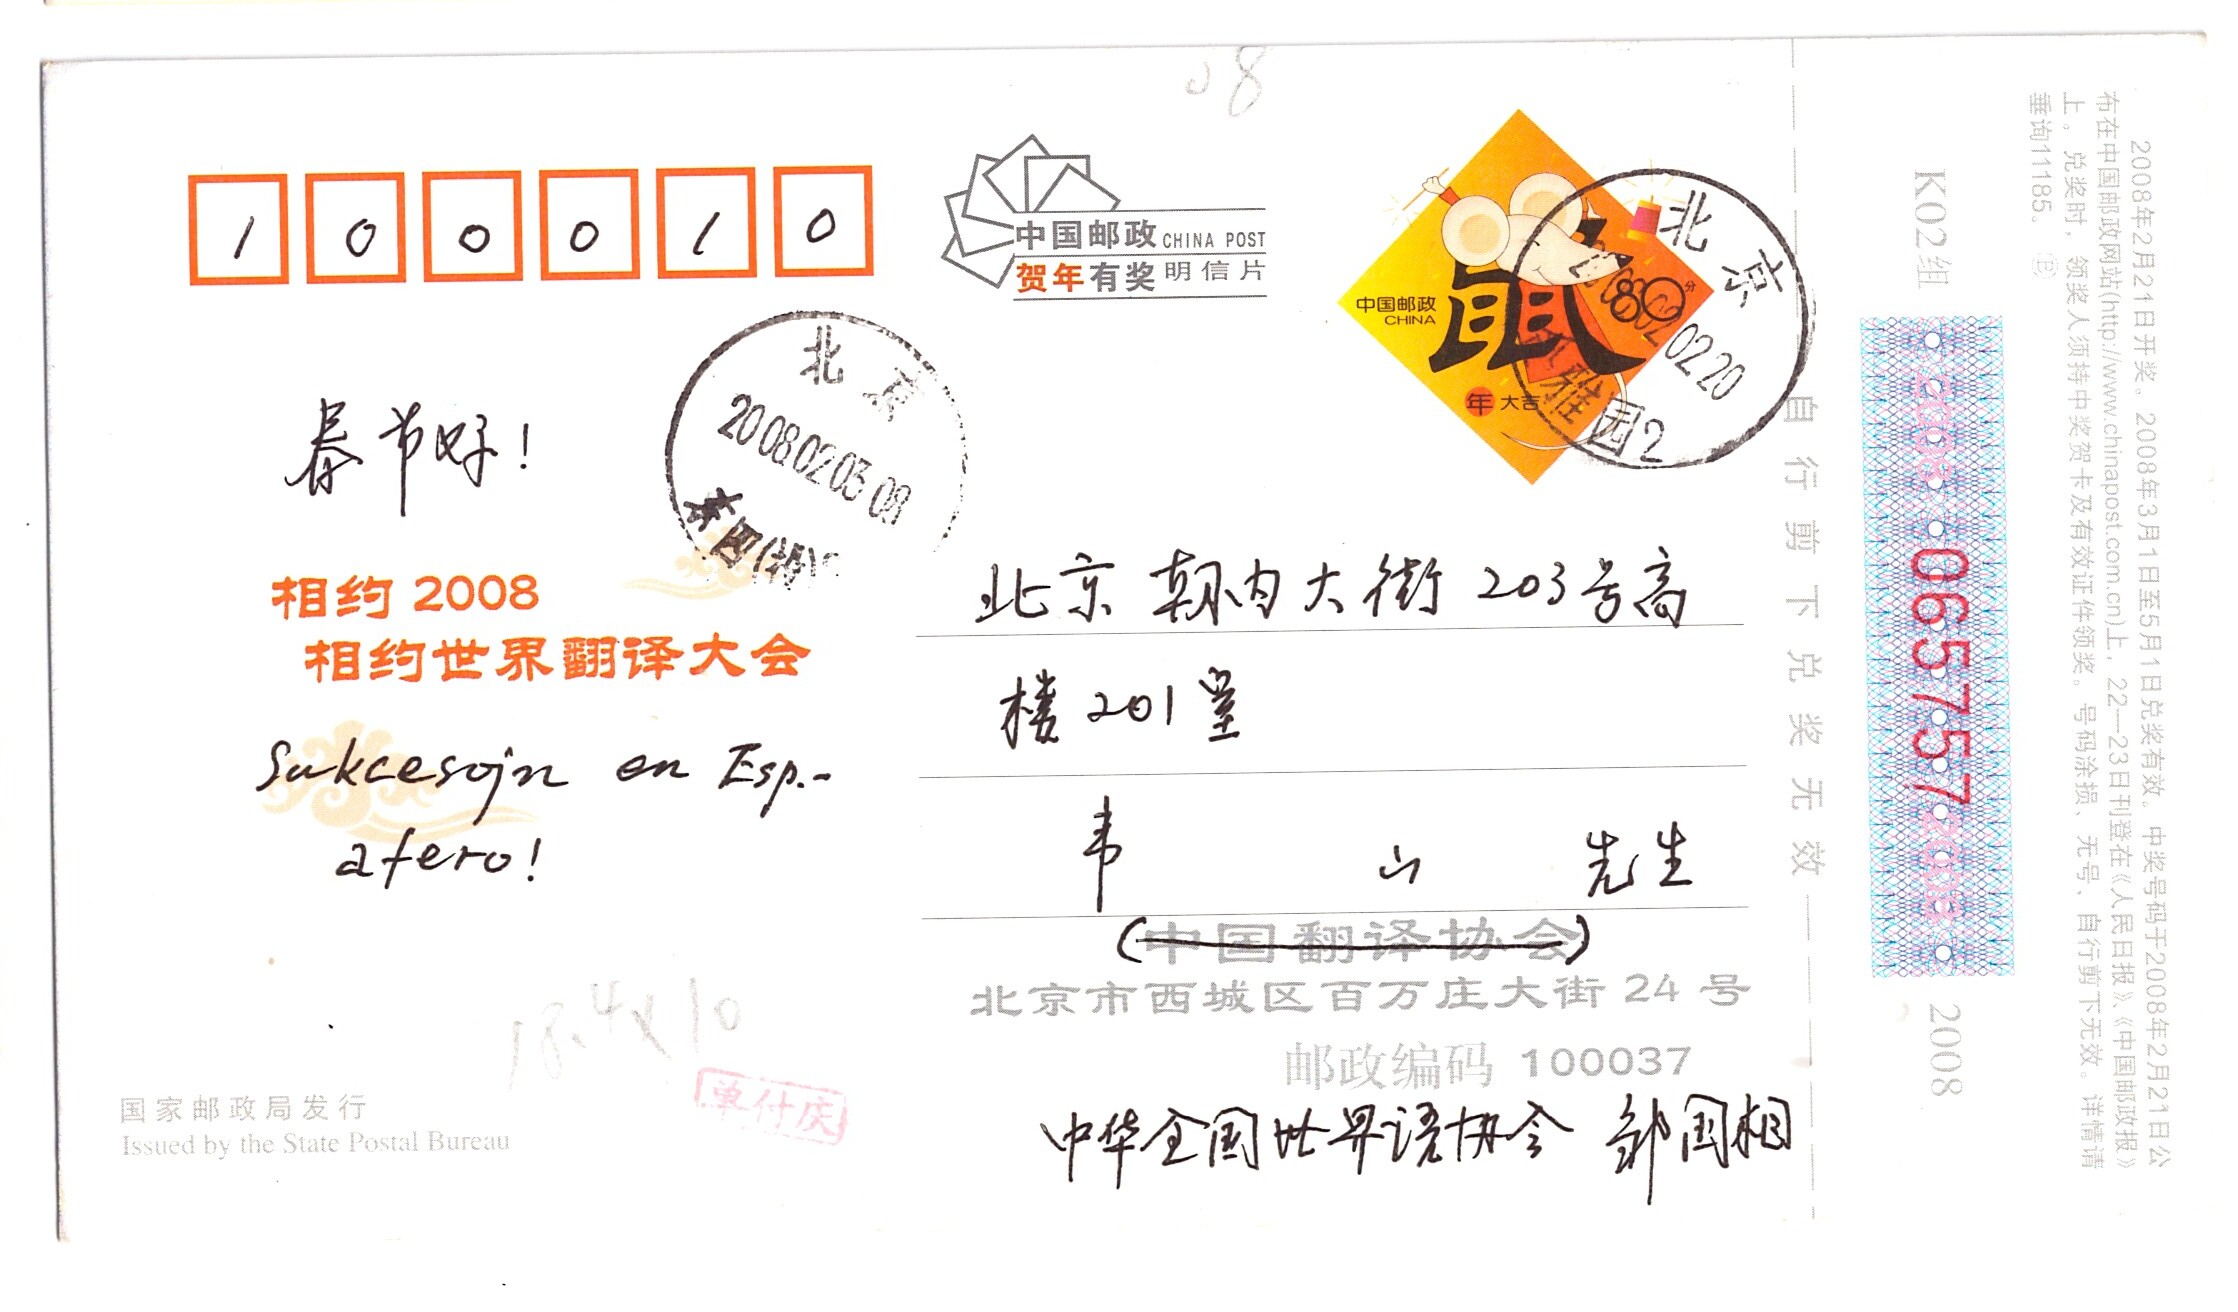 08
1 0 0 0 1 0
中国邮政 CHINA POST
贺年有奖明信片
中国邮政
CHINA
鼠
80分
年大吉
北京
02 20
雅园2
北京
2008 02 03 08
春节好!
相约 2008
相约世界翻译大会
Sukcesojn en Esp.-
afero!
北京 朝内大街 203号高
楼 201室
韦 山 先生
(中国翻译协会)
北京市西城区百万庄大街 24 号
邮政编码 100037
中华全国世界语协会 邹国相
18.4x10
单付庆
国家邮政局发行
Issued by the State Postal Bureau
自行剪下兑奖无效
K02组
2008 065757 2008
2008
2008年2月21日开奖。2008年3月1日至5月1日兑奖有效。中奖号码于2008年2月21日公
布在中国邮政网站(http://www.chinapost.com.cn)上，22—23日刊登在《人民日报》《中国邮政报》
上。兑奖时，领奖人须持中奖贺卡及有效证件领奖。号码涂损、无号、自行剪下无效。详情请
垂询11185。